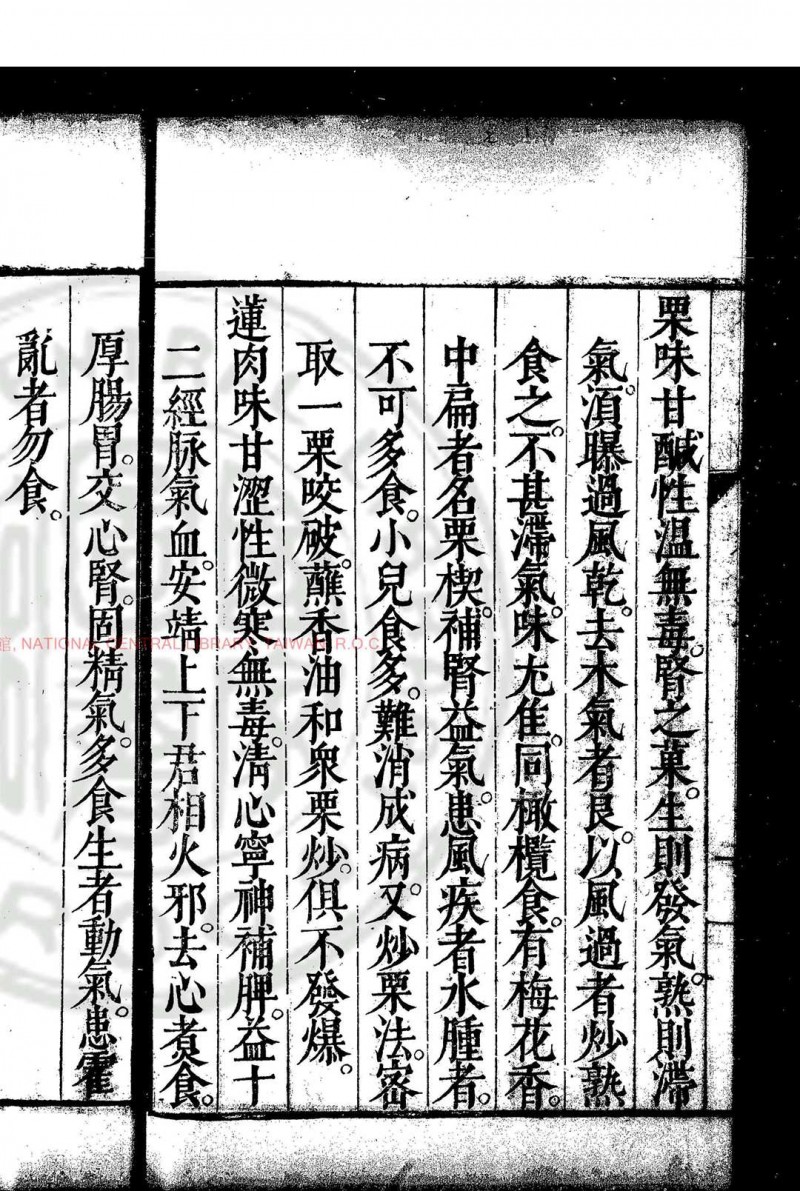 栗味甘醎性溫無毒。腎之菓。生則發氣。熟則滯
氣。湏曝過風乾。去木氣者良。以風過者炒熟
食之。不甚滯氣。味尤佳。同橄欖食。有梅花香。
中扁者名栗楔。補腎益氣。患風疾者水腫者。
不可多食。小兒食多。難消成病。又炒栗法。密
取一栗咬破。蘸香油和衆栗炒。俱不發爆。
蓮肉味甘澀性微寒無毒。清心寧神補脾。益十
二經脉氣血。安靖上下君相火邪。去心煑食。
厚腸胃。交心腎。固精氣。多食生者動氣。患霍
亂者勿食。
館, NATIONAL CENTRAL LIBRARY, TAIWAN, R.O.C